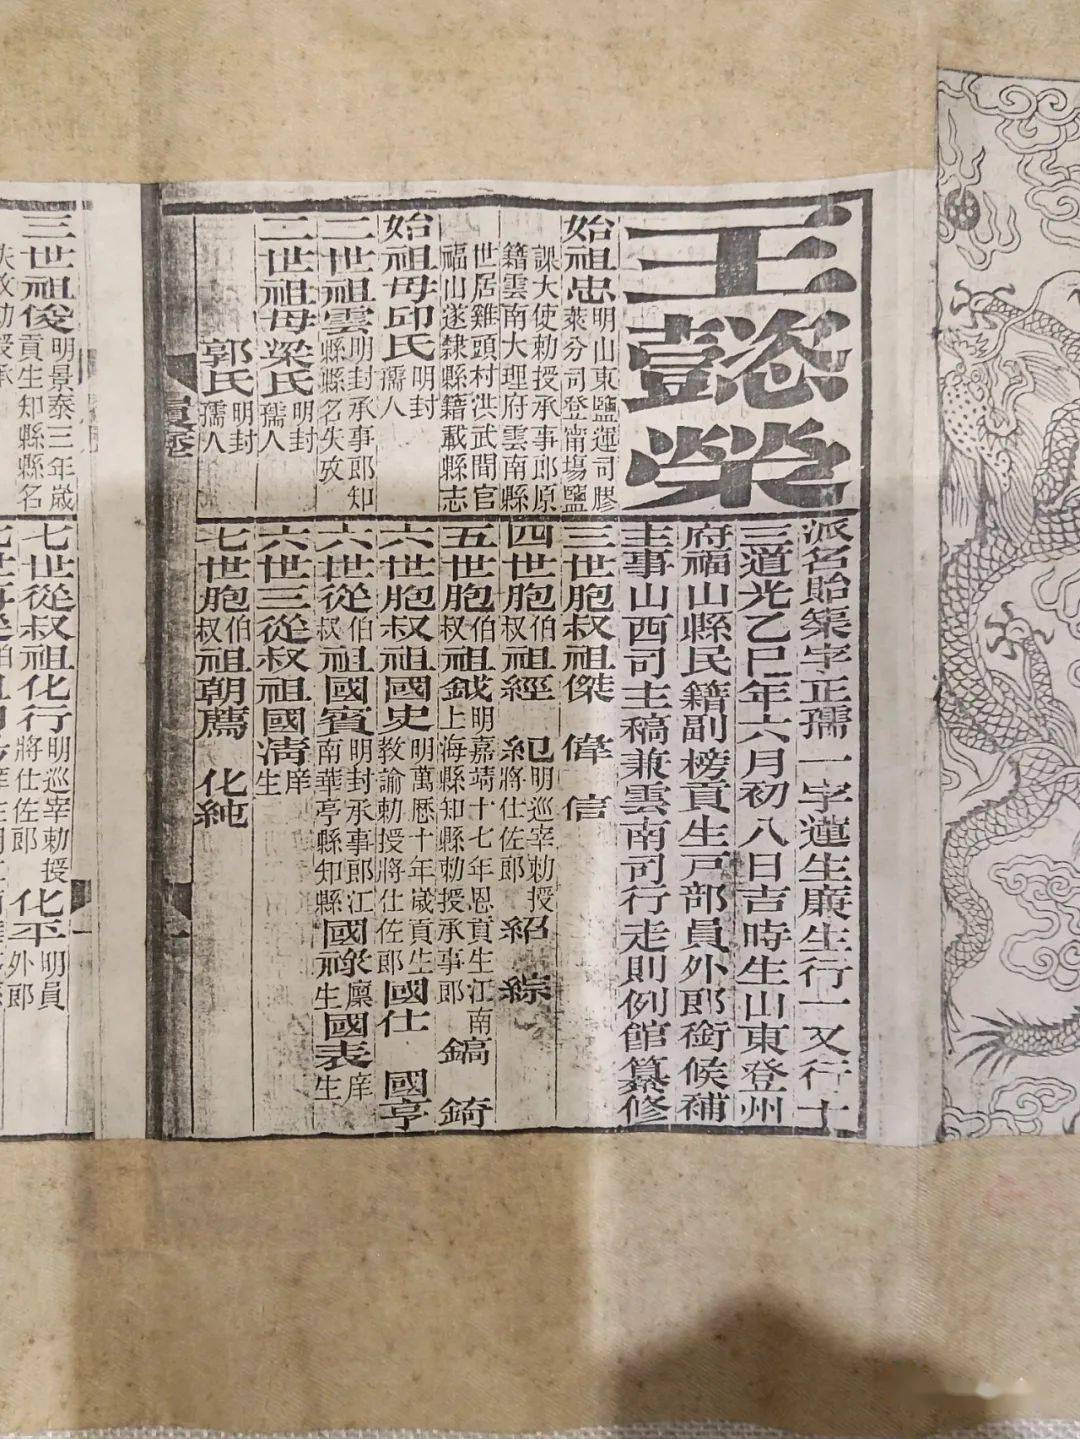 王懿榮
派名貽榘字正孺一字蓮生廩生行一又行十
三道光乙巳年六月初八日吉時生山東登州
府福山縣民籍副榜貢生戶部員外郎銜候補
主事山西司主稿兼雲南司行走則例館纂修
始祖忠明山東鹽運司膠
萊分司登甯場鹽
課大使勅授承事郎原
籍雲南大理府雲南縣
世居雞頭村洪武間官
福山遂隸縣籍載縣志
始祖母邱氏明封孺人
二世祖雲明封承事郎知縣縣名失攷
二世祖母梁氏明封孺人
郭氏明封孺人
三世胞叔祖傑 偉 信
四世胞伯叔祖經 紀明巡宰勅授將仕佐郎 紹 綜
五世胞伯叔祖鉞明嘉靖十七年恩貢生江南上海縣知縣勅授承事郎 鎬 錡
六世胞叔祖國史明萬厯十年歲貢生教諭勅授將仕佐郎 國仕 國亨
六世從伯叔祖國賓明封承事郎江南華亭縣知縣 國祿廩生 國表庠生
六世三從叔祖國清庠生
七世胞伯叔祖朝薦 化純
一
三世祖俊明景泰三年歲
貢生知縣縣名
失攷勅授承
七世從叔祖化行明巡宰勅授將仕佐郎 化平明員外郎